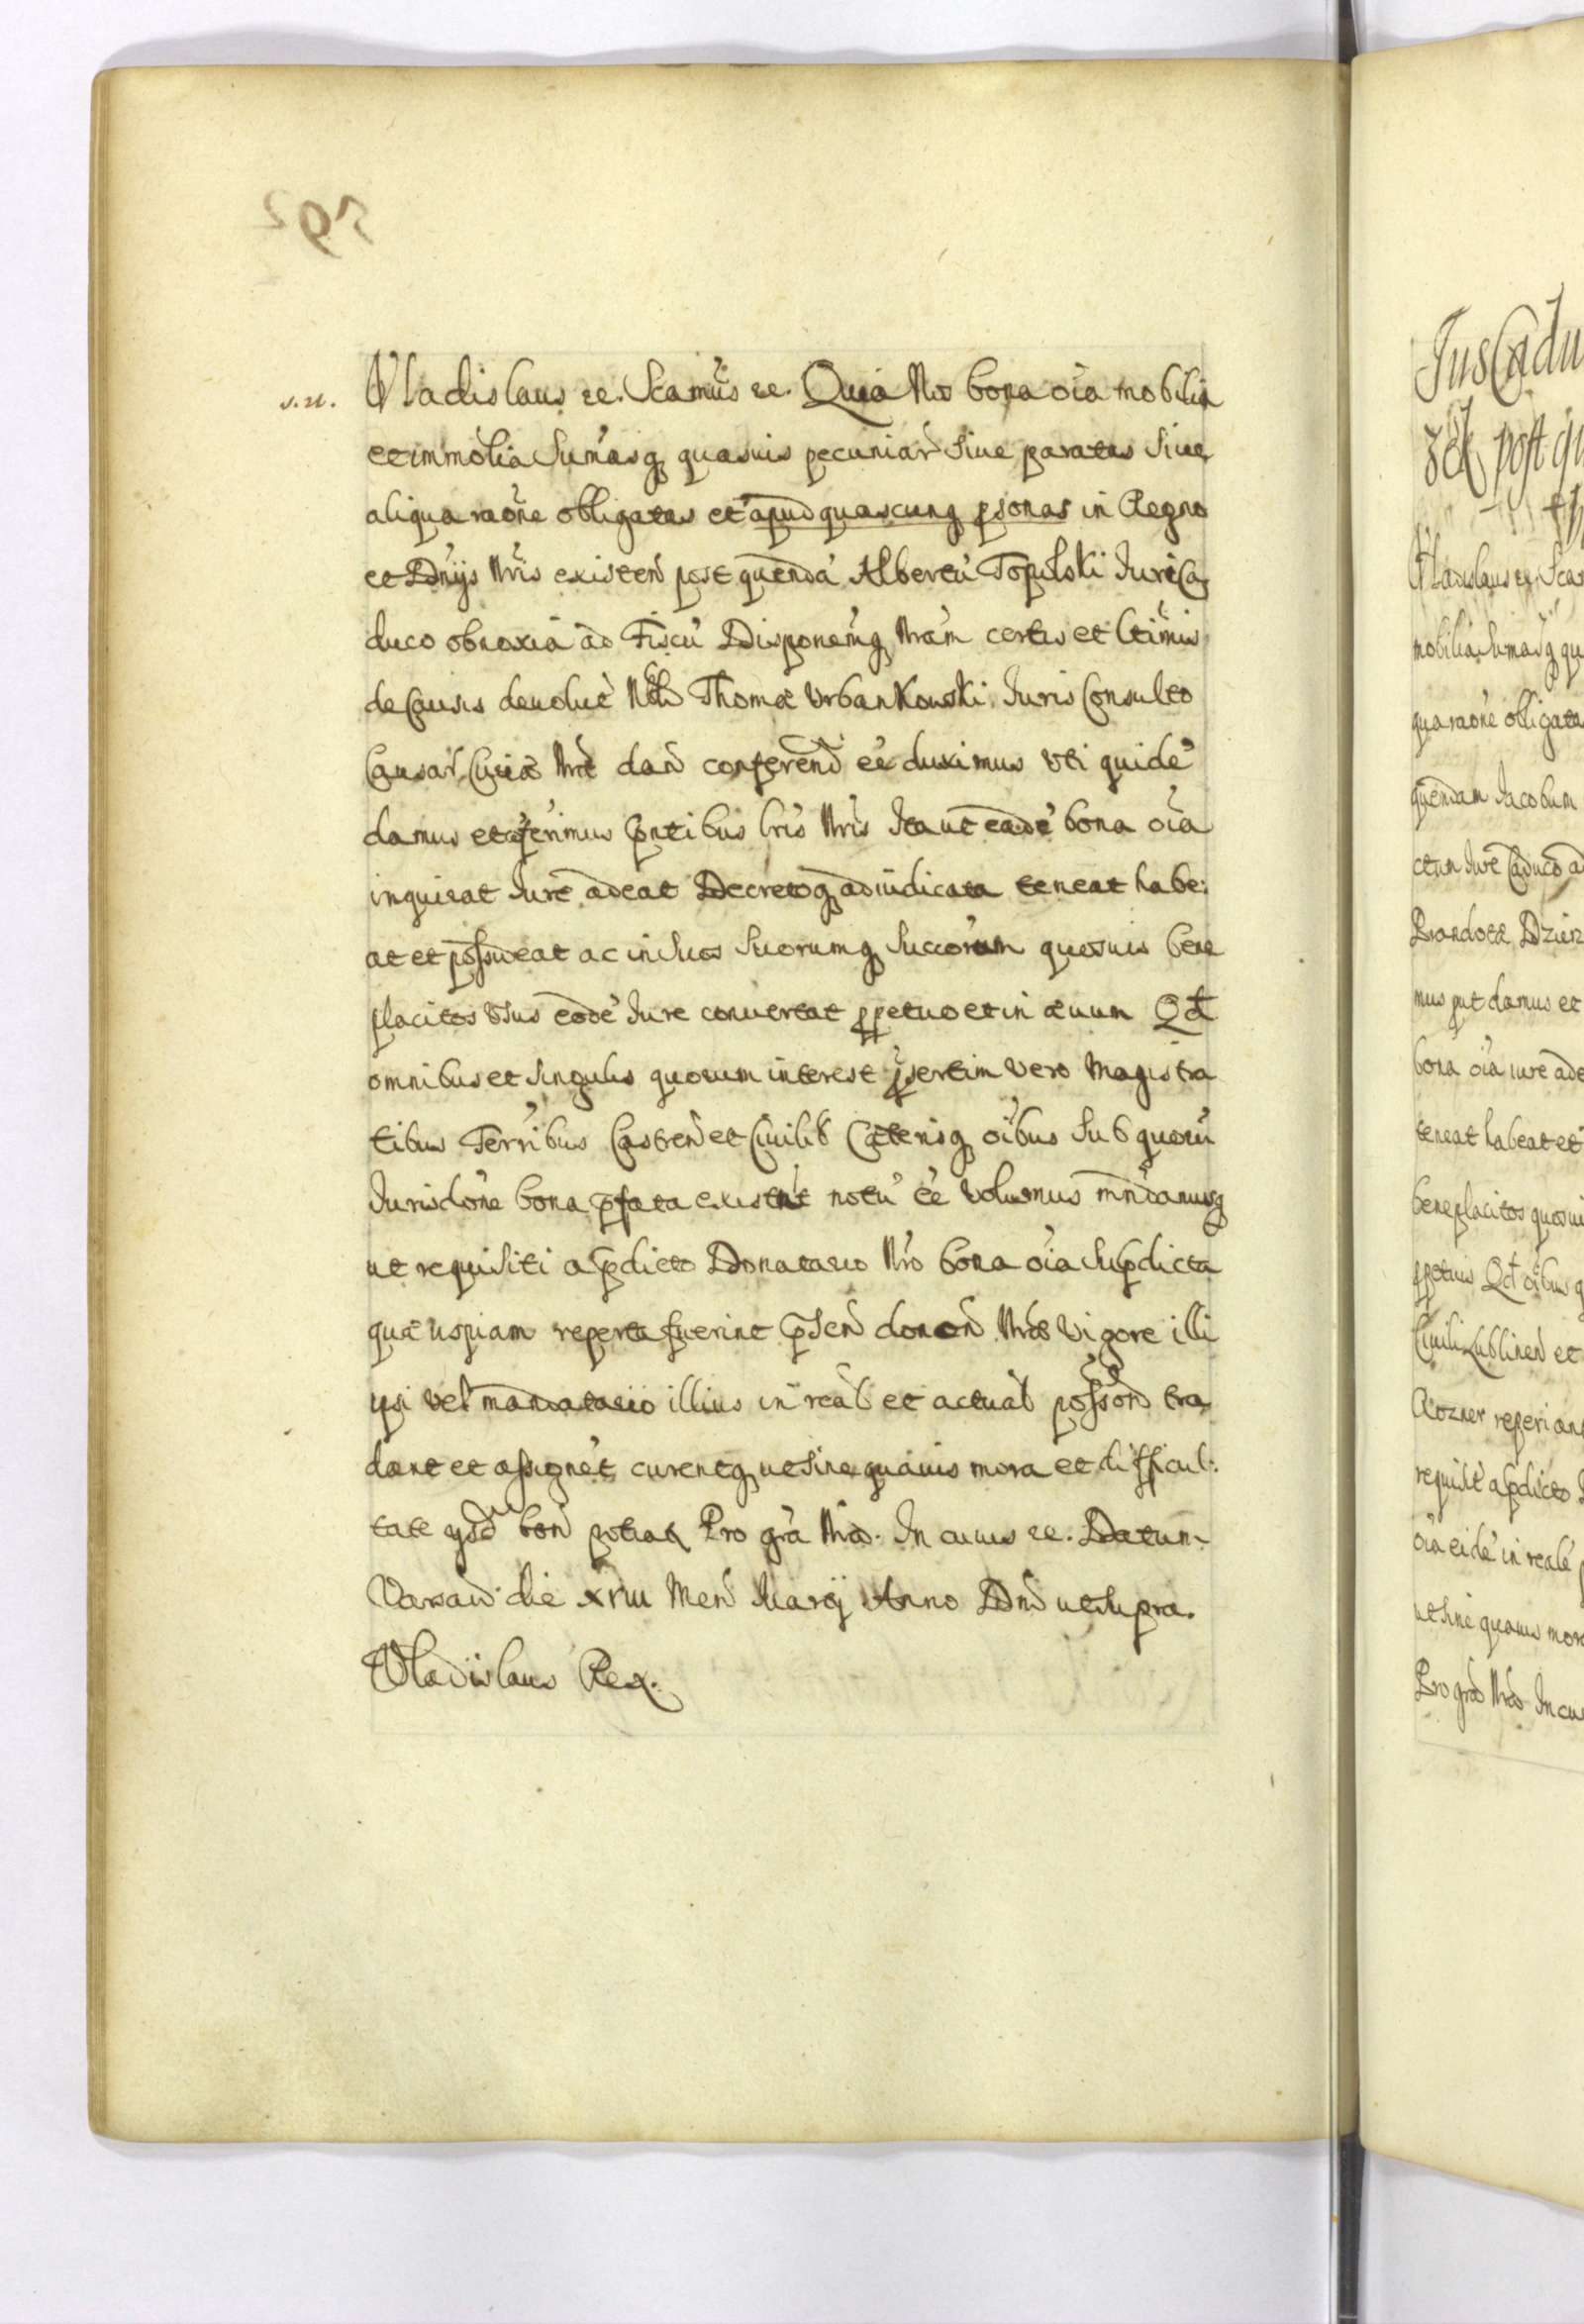 s. n.
Vladislaus ec. Scamus ec. Quia Nos bona oia mobilia
et immolia Sumasq quasuis pecuniar siue paratas siue
aliqua raone obligatas et apud quascunq psonas in Regno
et Dnijs Nris existen post quenda Albertu Topulski Jure Ca
duco obnoxia ad Fiscu Disponemq Nram certis et ltimis
de Causis deuolut Nbli Thomæ Vrbankowski Juris Consulto
Causar Curiæ Nræ dan conferend ee duximus vti quide
damus et conferimus pntibus lris Nris Ita ut eade bona oia
inquirat Jure adeat Decretoq adiudicata teneat habe:
at et possideat ac in suos Suorumq Succorum quosuis bene
placitos vsus eode Jure conuertat ppetuo et in æuum Qd
omnibus et singulis quorum interest psertim vero Magistra
tibus Terribus Castren et Ciuilib Cæterisq oibus Sub quoru
Jurisdone bona pfata existnt notu ee volumus mndamusq
ut requisiti a pdicto Donatario Nro bona oia Supdicta
quæ uspiam reperta fuerint psen donon Nræ vigore illi
ipsi vel mandatario illius in real et actual posson tra
dant et assignet curentq ut sine quauis mora et difficul:
tate ijsd bon potiat Pro gra Nra. In cuius ec. Datum
Varsau die xviii Men Marij Anno Dni ut supra.
Vladislaus Rex.
Jus Cadu
post qu
Vladislaus ec. Sca
mobilia Sumasq qu
qua raone obligata
quendam Jacobum
Jure Caduco ad
mus put damus et
bona oia iure ade
teneat habeat et
beneplacitos quosui
ppetuis Qd oibus q
Ciuili Lublinen et
Rozner reperiant
requisit a pdicto
oia eide in reale
ut sine quauis mor
Pro gra Nra In cu